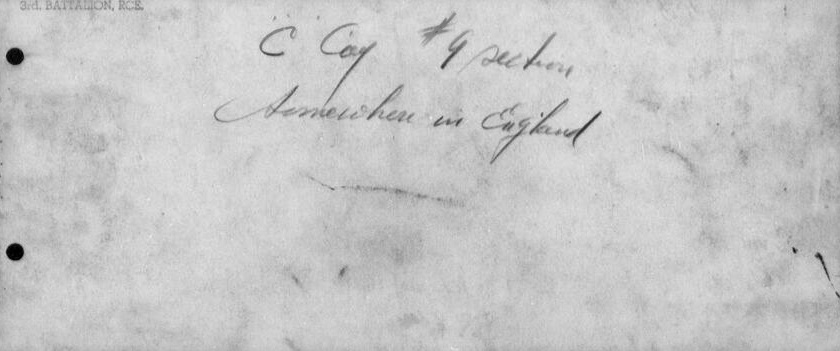 3rd. BATTALION, RCE.
"C" Coy #9 section
Somewhere in England